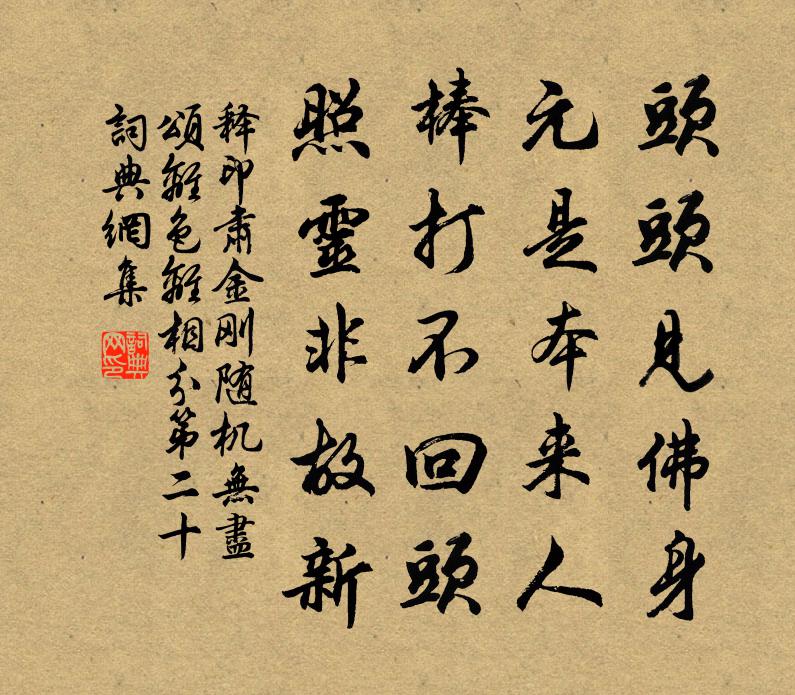 頭頭見佛身
元是本来人
棒打不回頭
照靈非故新
释印肅金刚随机無盡
頌離色離相分第二十
詞典網集
詞典网印